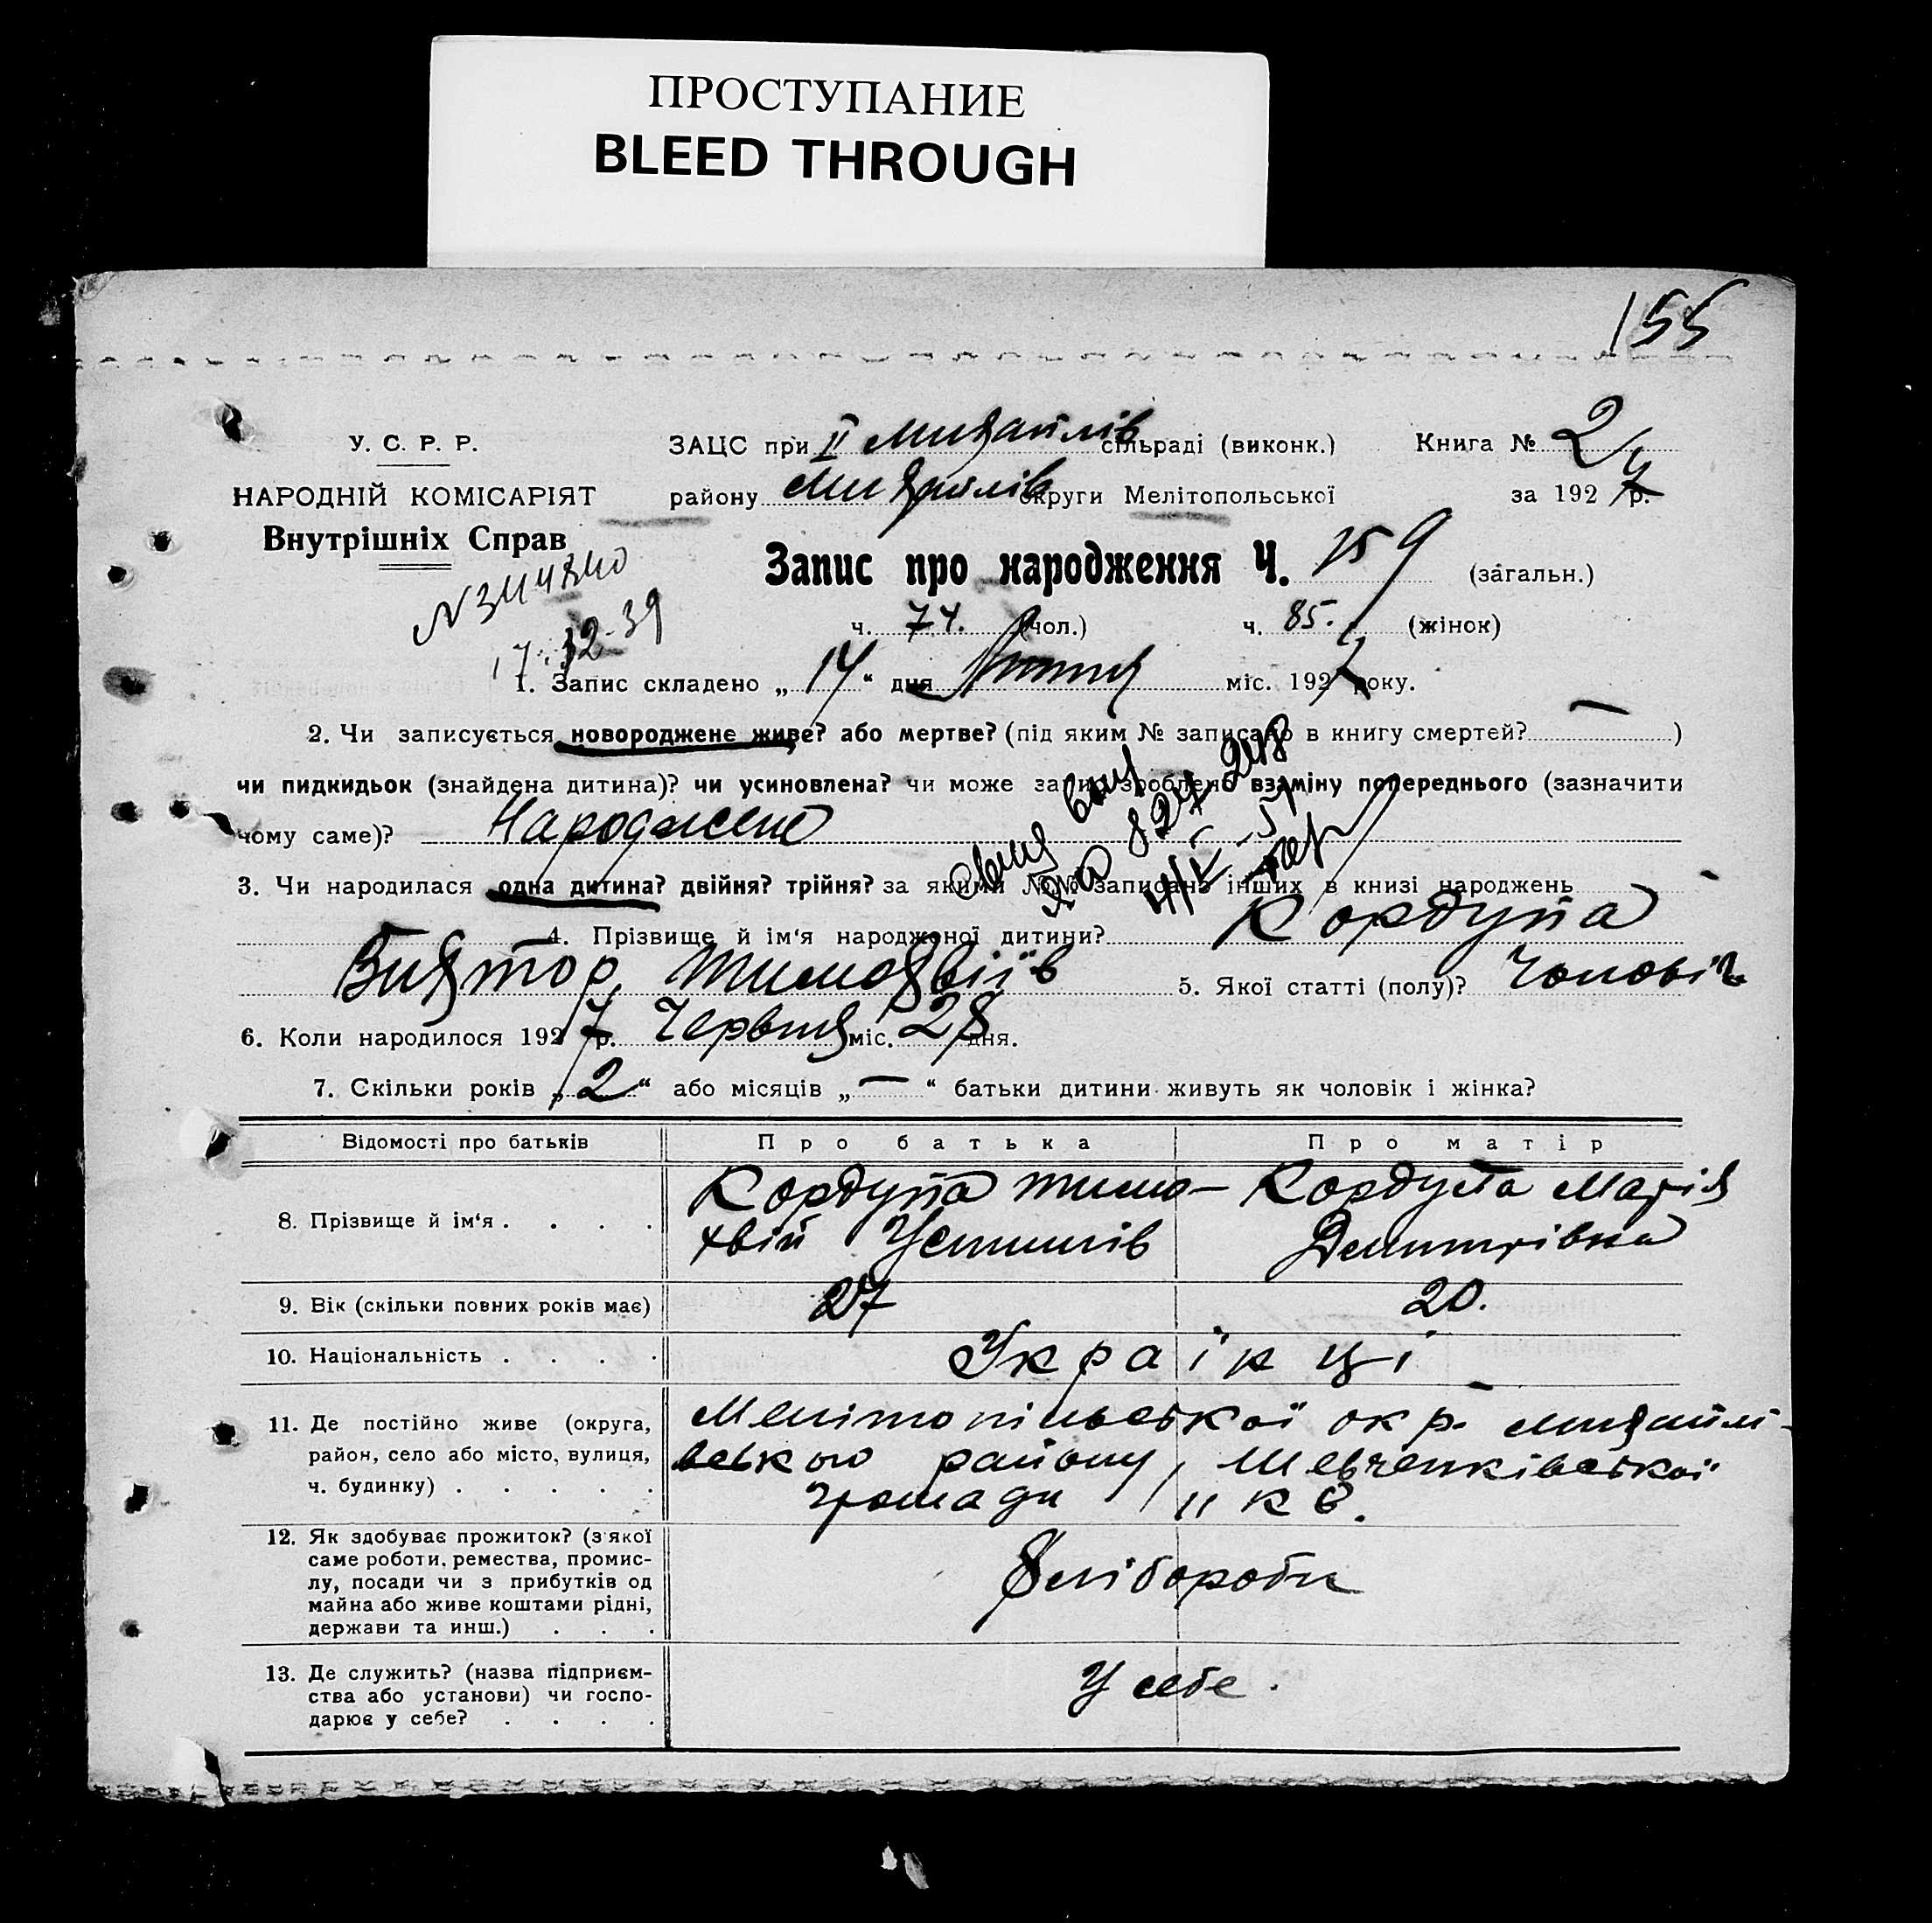 ПРОСТУПАНИЕ
BLEED THROUGH
155
У. С. Р. Р.
НАРОДНІЙ КОМІСАРІЯТ
Внутрішніх Справ
ЗАЦС при ІІ Михайлів сільраді (виконк.) Книга № 2
району Михайлів округи Мелітопольської за 1927 р.
Запис про народження Ч. 159 (загальн.)
ч. 74. (чол.) ч. 85. (жінок)
17.12-39
1. Запис складено „14“ дня Липня міс. 1927 року.
2. Чи записується новороджене живе? або мертве? (під яким № записано в книгу смертей? — )
чи пидкидьок (знайдена дитина)? чи усиновлена? чи може запис зроблено взаміну попереднього (зазначити
чому саме)? Народжене
3. Чи народилася одна дитина? двійня? трійня? за якими №№ записано інших в книзі народжень -
4. Прізвище й ім'я народженої дитини? Кордупа
Вихтор, Тимохвіїв 5. Якої статті (полу)? Чоловіч
6. Коли народилося 1927 р. Червня міс. 28 дня.
7. Скільки років „2“ або місяців „—“ батьки дитини живуть як чоловік і жінка?
Відомості про батьків Про батька Про матір
8. Прізвище й ім'я . . . . Кордупа Тимо- Кордупа Марія
хвій Устимів Дмитрівна
9. Вік (скільки повних років має) 27 20.
10. Національність . . . . Українці
11. Де постійно живе (округа, Мелітопільської окр. Михайлі-
район, село або місто, вулиця, вського району, Шевченківської
ч. будинку) . . . . . громади ІІ кв.
12. Як здобуває прожиток? (з якої
саме роботи, ремества, промис-
лу, посади чи з прибутків од Хлібороби
майна або живе коштами рідні,
держави та инш.) . . .
13. Де служить? (назва підприєм- У себе.
ства або установи) чи госпо-
дарює у себе? . . . .